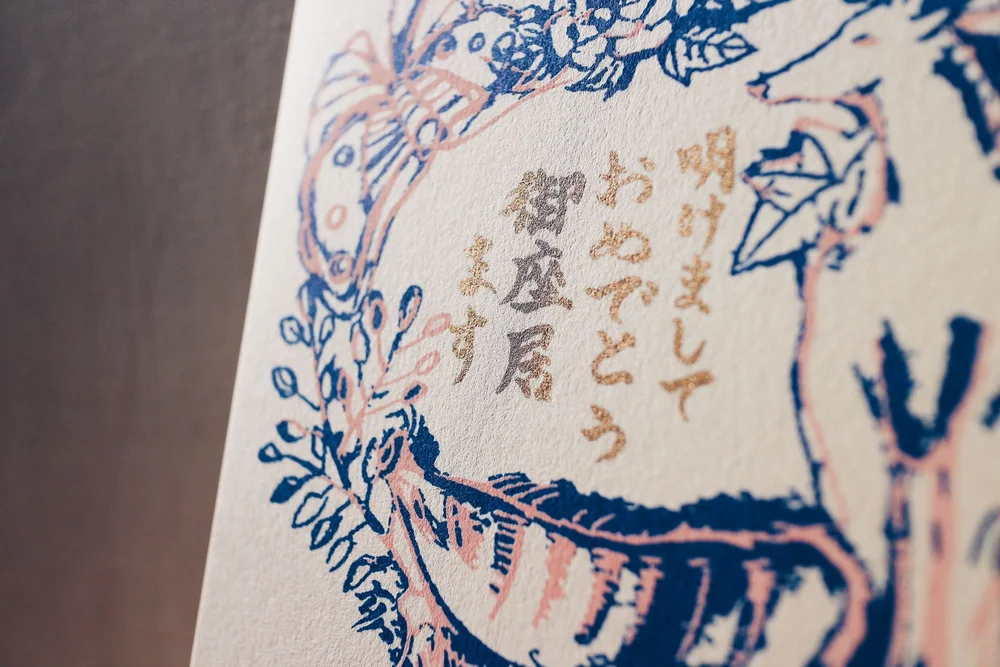 明けまして
おめでとう
御座居
ます